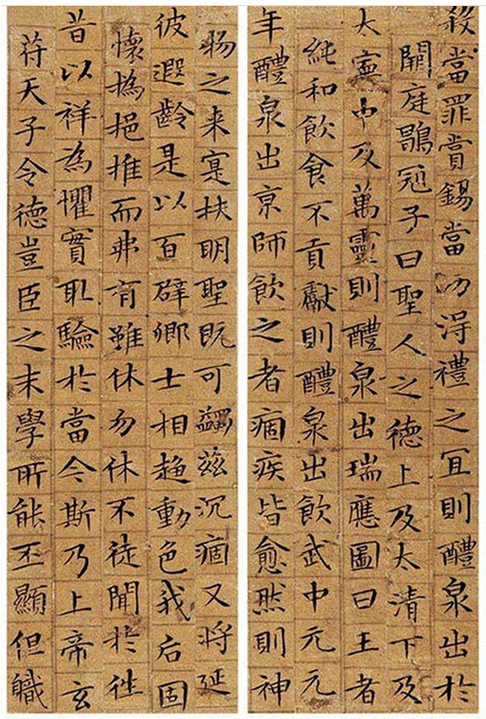 殺當罪賞錫當功得禮之冝則醴泉出於
闕庭鶡冠子曰聖人之德上及太清下及
太寧中及萬靈則醴泉出瑞應圖曰王者
純和飲食不貢獻則醴泉出飲武中元元
年醴泉出京師飲之者痼疾皆愈然則神
物之来寔扶明聖既可蠲茲沉痼又將延
彼遐齡是以百辟卿士相趍動色我后固
懷撝挹推而弗有雖休勿休不徒聞於往
昔以祥為懼實取驗於當今斯乃上帝玄
符天子令德豈臣之末學所能丕顯但職